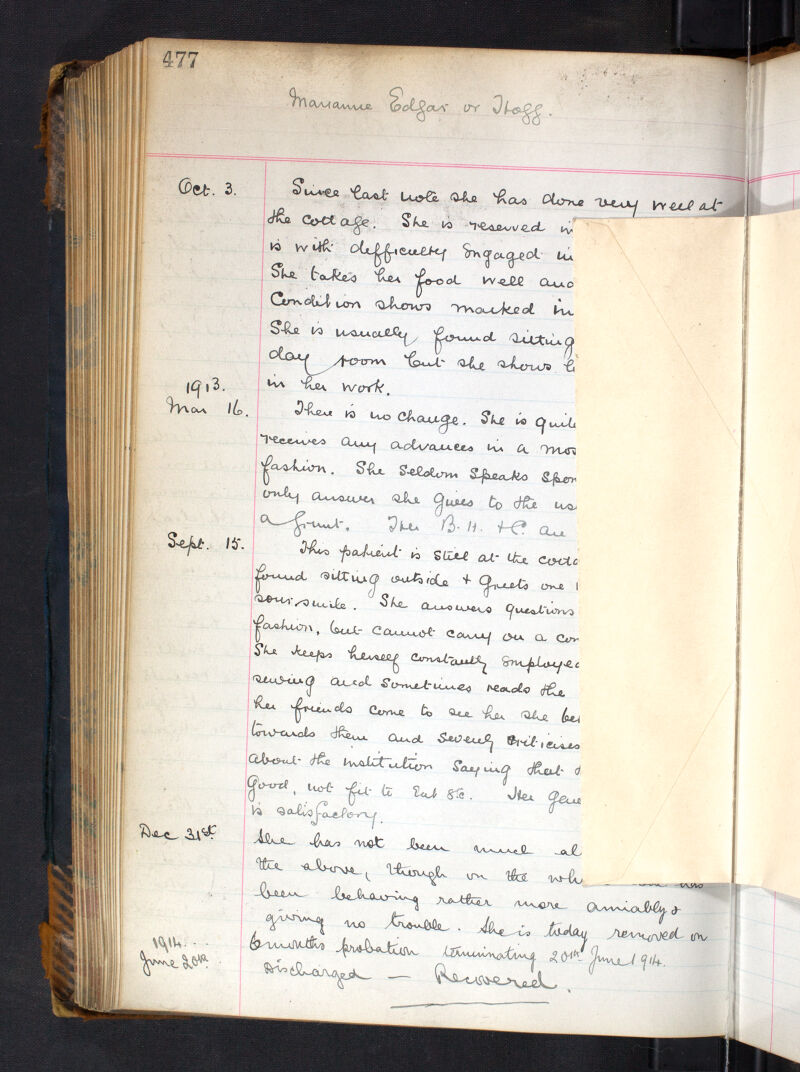 477
Marianne Edgar or Hogg.
Oct. 3. Since last note she has done very well at
the cottage. She is reserved
is with difficulty engaged in
She takes her food well and
Condition shows marked
She is usually found sitting
day room but she shows
in her work.
1913.
Mar 16. There is no change. She is
receives any advances in a
fashion. She seldom speaks
only answer she gives to the
a grunt. Her B. H. & C. are
Sept. 15. This patient is still at the
found sitting outside & greets one
sour smile. She answers questions
fashion, but cannot carry on a
She keeps herself constantly
sewing and sometimes reads the
her friends come to see her she
towards them and severely criticises
about the institution saying that
good, not fit to Eat &c. Her
is satisfactory.
Dec 31st. She has not been much
the above, though on the
been behaving rather more amiably &
giving no trouble. She is today removed on
6 months probation terminating 20th June 1914.
1914.
June 20th. Discharged — Recovered.